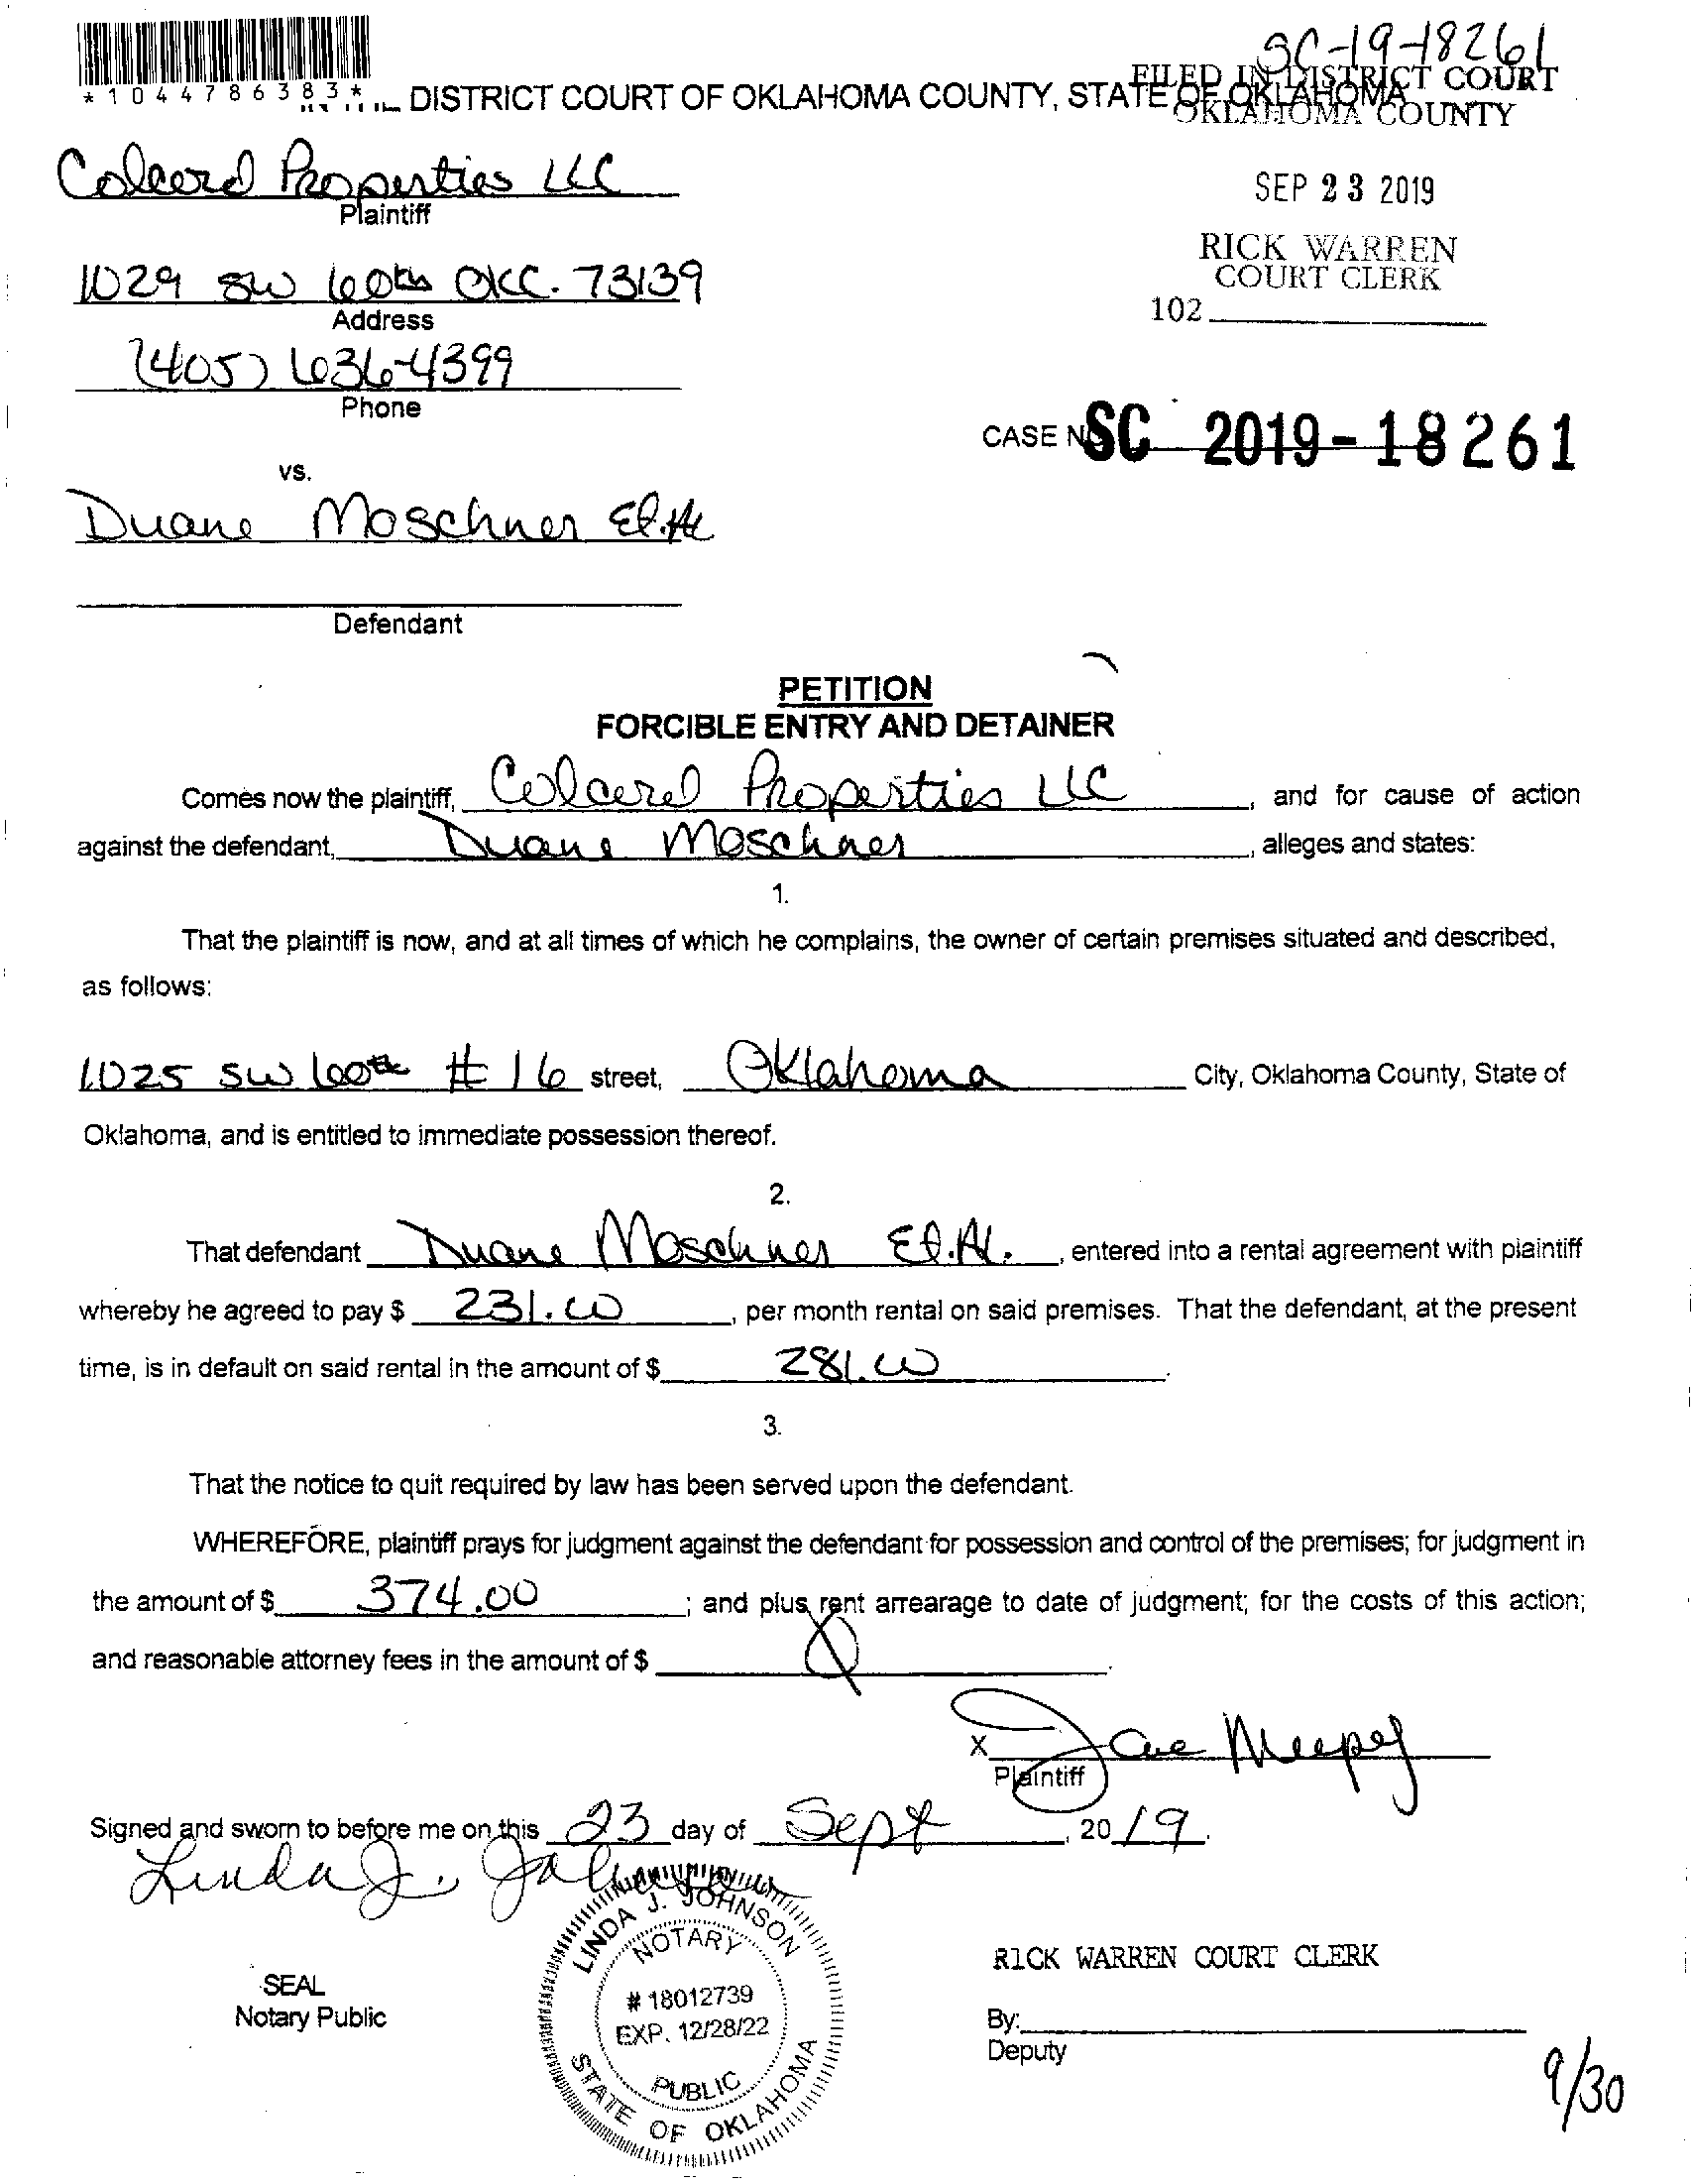 SC-19-18261
*1044786383*
DISTRICT COURT OF OKLAHOMA COUNTY, STATE OF OKLAHOMA
FILED IN DISTRICT COURT
OKLAHOMA COUNTY
Colcord Properties LLC
Plaintiff
SEP 23 2019
RICK WARREN
COURT CLERK
102
1029 SW 60th OKC. 73139
Address
(405) 636-4399
Phone
CASE NO SC 2019-18261
vs.
Duane Moschner Et.Al
Defendant
PETITION
FORCIBLE ENTRY AND DETAINER
Comes now the plaintiff, Colcord Properties LLC, and for cause of action
against the defendant, Duane Moschner, alleges and states:
1.
That the plaintiff is now, and at all times of which he complains, the owner of certain premises situated and described,
as follows:
1025 SW 60th #16 street, Oklahoma City, Oklahoma County, State of
Oklahoma, and is entitled to immediate possession thereof.
2.
That defendant Duane Moschner Et.Al., entered into a rental agreement with plaintiff
whereby he agreed to pay $ 231.00, per month rental on said premises. That the defendant, at the present
time, is in default on said rental in the amount of $ 281.00.
3.
That the notice to quit required by law has been served upon the defendant.
WHEREFORE, plaintiff prays for judgment against the defendant for possession and control of the premises; for judgment in
the amount of $ 374.00; and plus rent arrearage to date of judgment; for the costs of this action;
and reasonable attorney fees in the amount of $
X
Plaintiff
Signed and sworn to before me on this 23 day of Sept, 2019.
Linda J. Johnson
LINDA J. JOHNSON
NOTARY
# 18012739
EXP. 12/28/22
PUBLIC
STATE OF OKLAHOMA
SEAL
Notary Public
RICK WARREN COURT CLERK
By:
Deputy
9/30